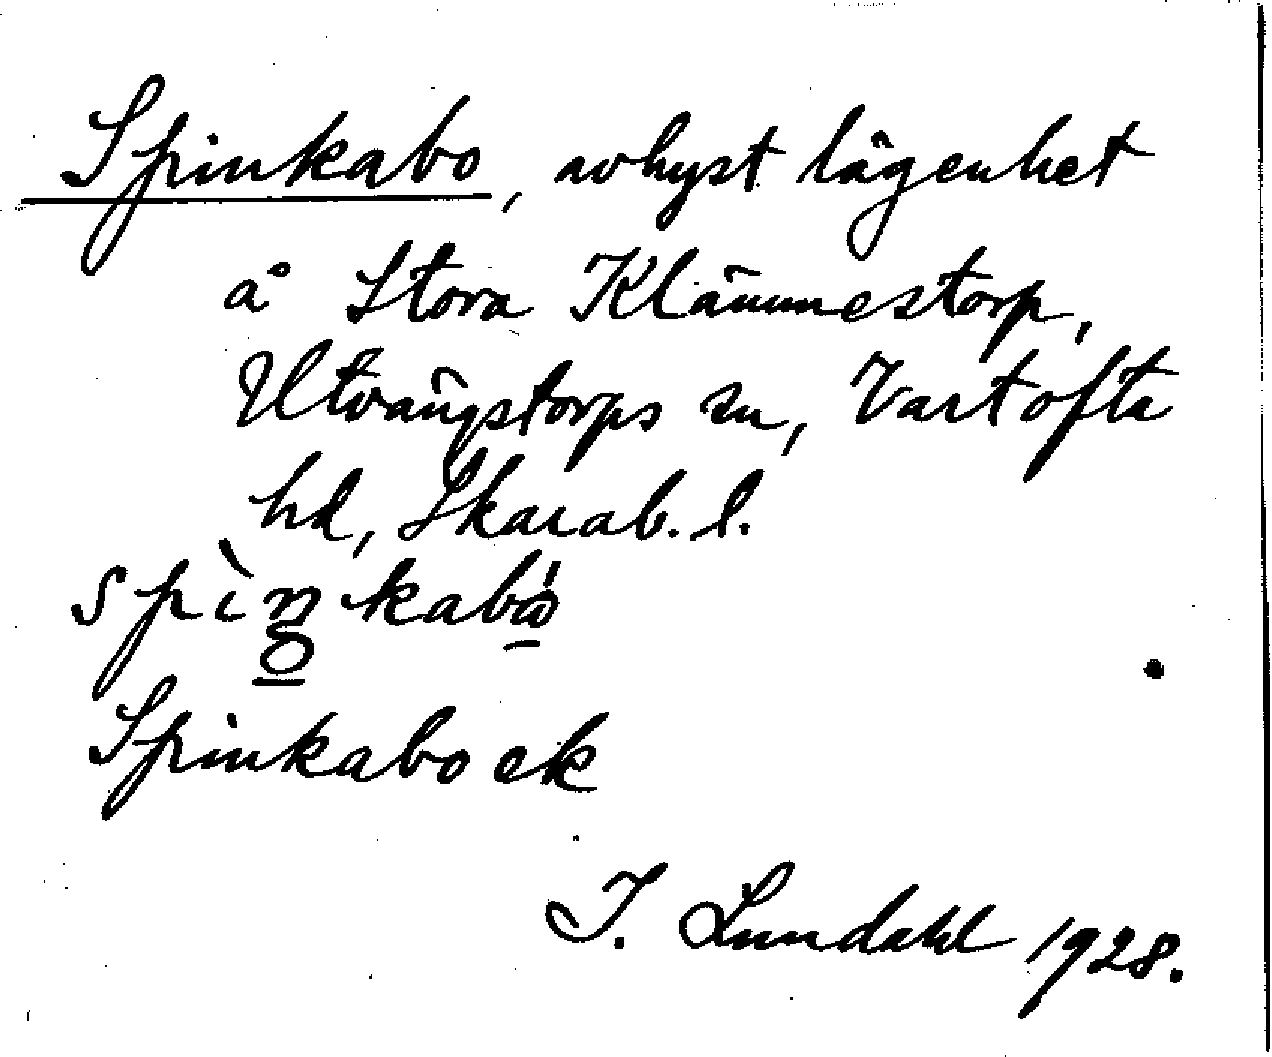 Spinkabo, avhyst lägenhet
å Stora Klämmestorp,
Utvängstorps sn, Vartofta
hd, Skarab. l.
spìŋkabó
Spinkabo ek
I. Lundahl 1928.